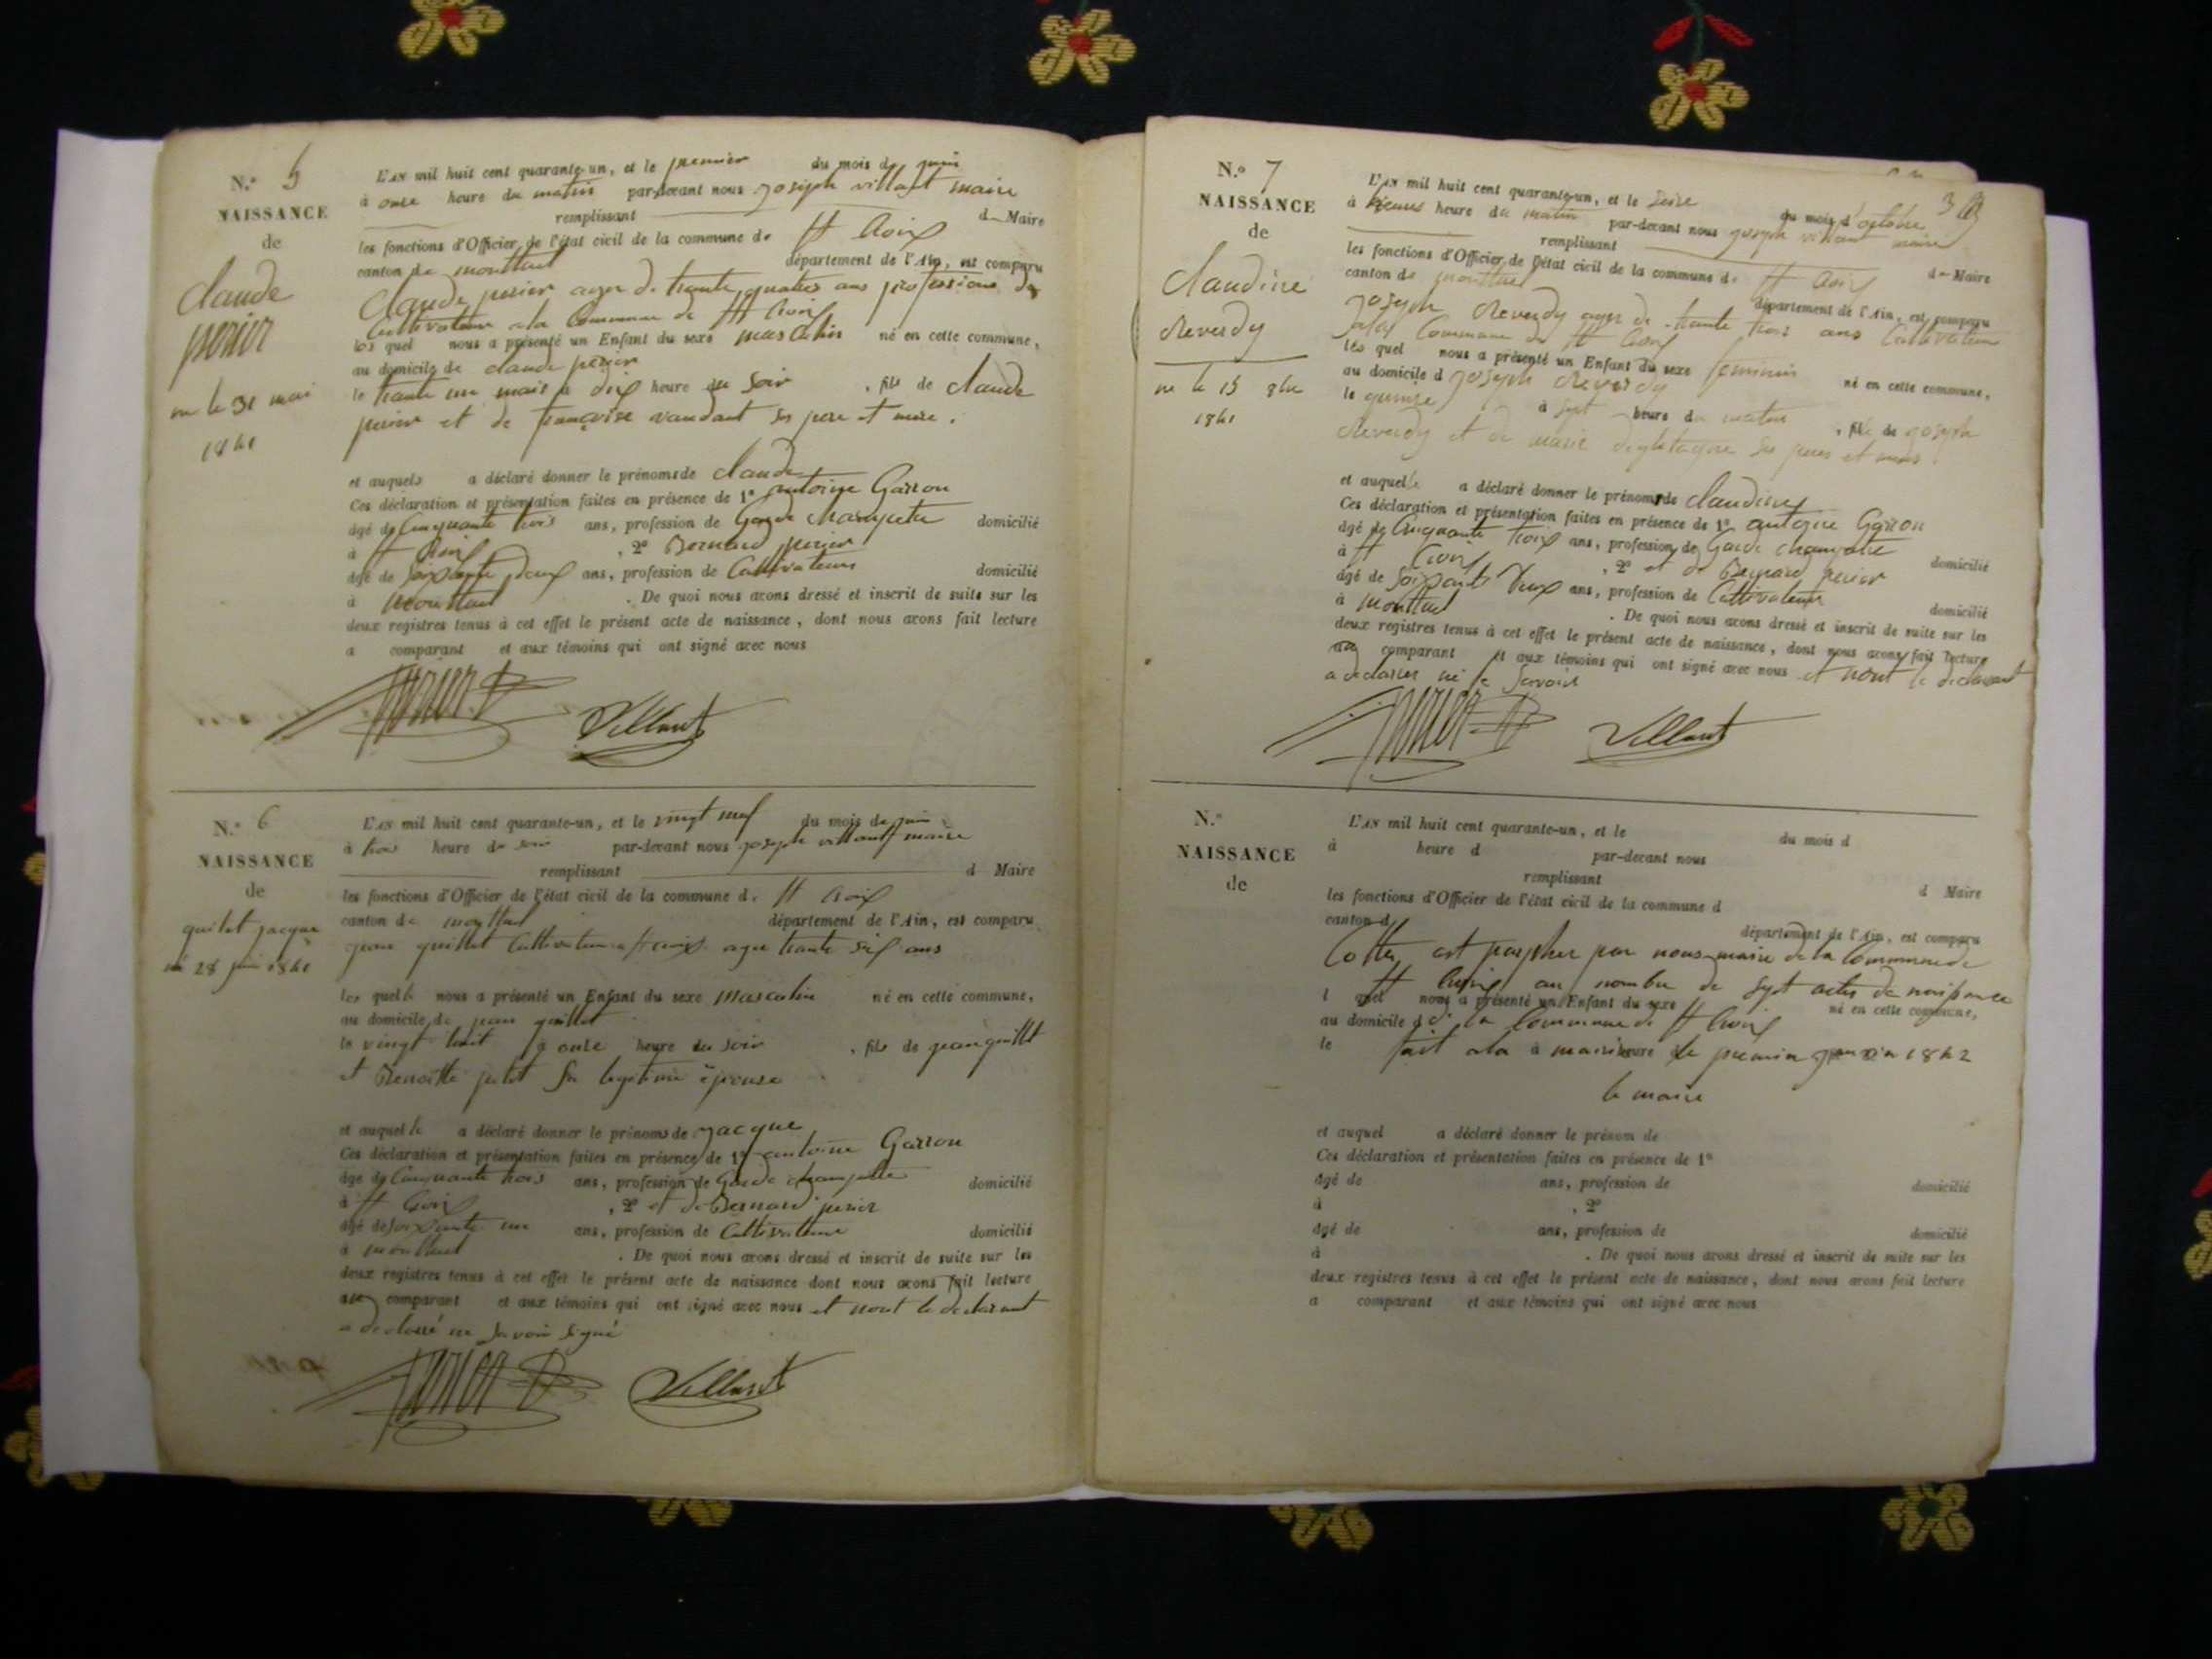 N.° 5
NAISSANCE
de
claude
perier
né le 31 mai
1841
L'AN mil huit cent quarante-un, et le premier du mois de juin
à onze heure du matin par-devant nous joseph villart maire
remplissant d Maire
les fonctions d'Officier de l'état civil de la commune de Ste Croix
canton de montluel département de l'Ain, est comparu
Claude perier agez de trante quatres ans professions de
Cultivateur a la Commune de Ste Croix
les quel nous a présenté un Enfant du sexe masculin né en cette commune,
au domicile de claude perier
le trante un mais à dix heure du soir , fils de claude
perier et de françoise vandant ses pere et mere.
et auquels a déclaré donner le prénoms de claude
Ces déclaration et présentation faites en présence de 1° antoine Garron
âgé de Cinquante trois ans, profession de Garde champetre domicilié
à Ste Croix , 2° Bernard perier
âgé de soixante deux ans, profession de Cultivateur domicilié
à Montluel . De quoi nous avons dressé et inscrit de suite sur les
deux registres tenus à cet effet le présent acte de naissance, dont nous avons fait lecture
a comparant et aux témoins qui ont signé avec nous
perier B Villart
N.° 6
NAISSANCE
de
quillet jacque
né 28 juin 1841
L'AN mil huit cent quarante-un, et le vingt neuf du mois de juin
à trois heure du soir par-devant nous joseph villart maire
remplissant d Maire
les fonctions d'Officier de l'état civil de la commune d. Ste Croix
canton de montluel département de l'Ain, est comparu
jean quillet Cultivateur a ste croix agee trante six ans
les quelle nous a présenté un Enfant du sexe Masculin né en cette commune,
au domicile de jean quillet
le vingt huit à onze heure du soir , fils de jean quillet
et Benoitte petit sa legitime épouse
et auquel le a déclaré donner le prénoms de jacque
Ces déclaration et présentation faites en présence de 1° antoine Garron
âgé de Cinquante trois ans, profession de Garde champette domicilié
à Ste Croix , 2° et de Bernard perier
âgé de soixante un ans, profession de Cultivateur domicilié
à montluel . De quoi nous avons dressé et inscrit de suite sur les
deux registres tenus à cet effet le présent acte de naissance dont nous avons fait lecture
aux comparant et aux témoins qui ont signé avec nous et nont le declarant
a declaré ne savoir signé
perier B Villart
N.° 7
NAISSANCE
de
claudine
Reverdy
né le 15 8bre
1841
L'AN mil huit cent quarante-un, et le seize du mois d'octobre
à heure du matin par-devant nous joseph villart maire
remplissant d Maire
les fonctions d'Officier de l'état civil de la commune de Ste Croix
canton de montluel département de l'Ain, est comparu
joseph Reverdy agez de trante trois ans Cultivateur
Commune de Ste Croix
les quel nous a présenté un Enfant du sexe feminin né en cette commune,
au domicile d joseph Reverdy
le quinze à sept heure du matin , fille de joseph
Reverdy et de marie ses peres et meres.
et auquelle a déclaré donner le prénoms de claudine
Ces déclaration et présentation faites en présence de 1° antoine Garron
âgé de Cinquante troix ans, profession de Garde champetre domicilié
à Ste Croix , 2° et de Bernard perier
âgé de soixante deux ans, profession de Cultivateur domicilié
à montluel . De quoi nous avons dressé et inscrit de suite sur les
deux registres tenus à cet effet le présent acte de naissance, dont nous avons fait lecture
au comparant et aux témoins qui ont signé avec nous et nont le declarant
a declarer ne le savoir
perier B Villart
N.°
NAISSANCE
de
L'AN mil huit cent quarante-un, et le du mois d
à heure d par-devant nous
remplissant d Maire
les fonctions d'Officier de l'état civil de la commune d
canton d département de l'Ain, est comparu
Cotter est parapher par nous maire de la Commune de
Ste Croix au nombre de sept actes de naissance
l quel nous a présenté un Enfant du sexe né en cette commune,
au domicile d de la Commune de Ste Croix
le fait a la à mairie heure d le premier janvier 1842
le maire
et auquel a déclaré donner le prénom de
Ces déclaration et présentation faites en présence de 1°
âgé de ans, profession de domicilié
à , 2°
âgé de ans, profession de domicilié
à . De quoi nous avons dressé et inscrit de suite sur les
deux registres tenus à cet effet le présent acte de naissance, dont nous avons fait lecture
a comparant et aux témoins qui ont signé avec nous